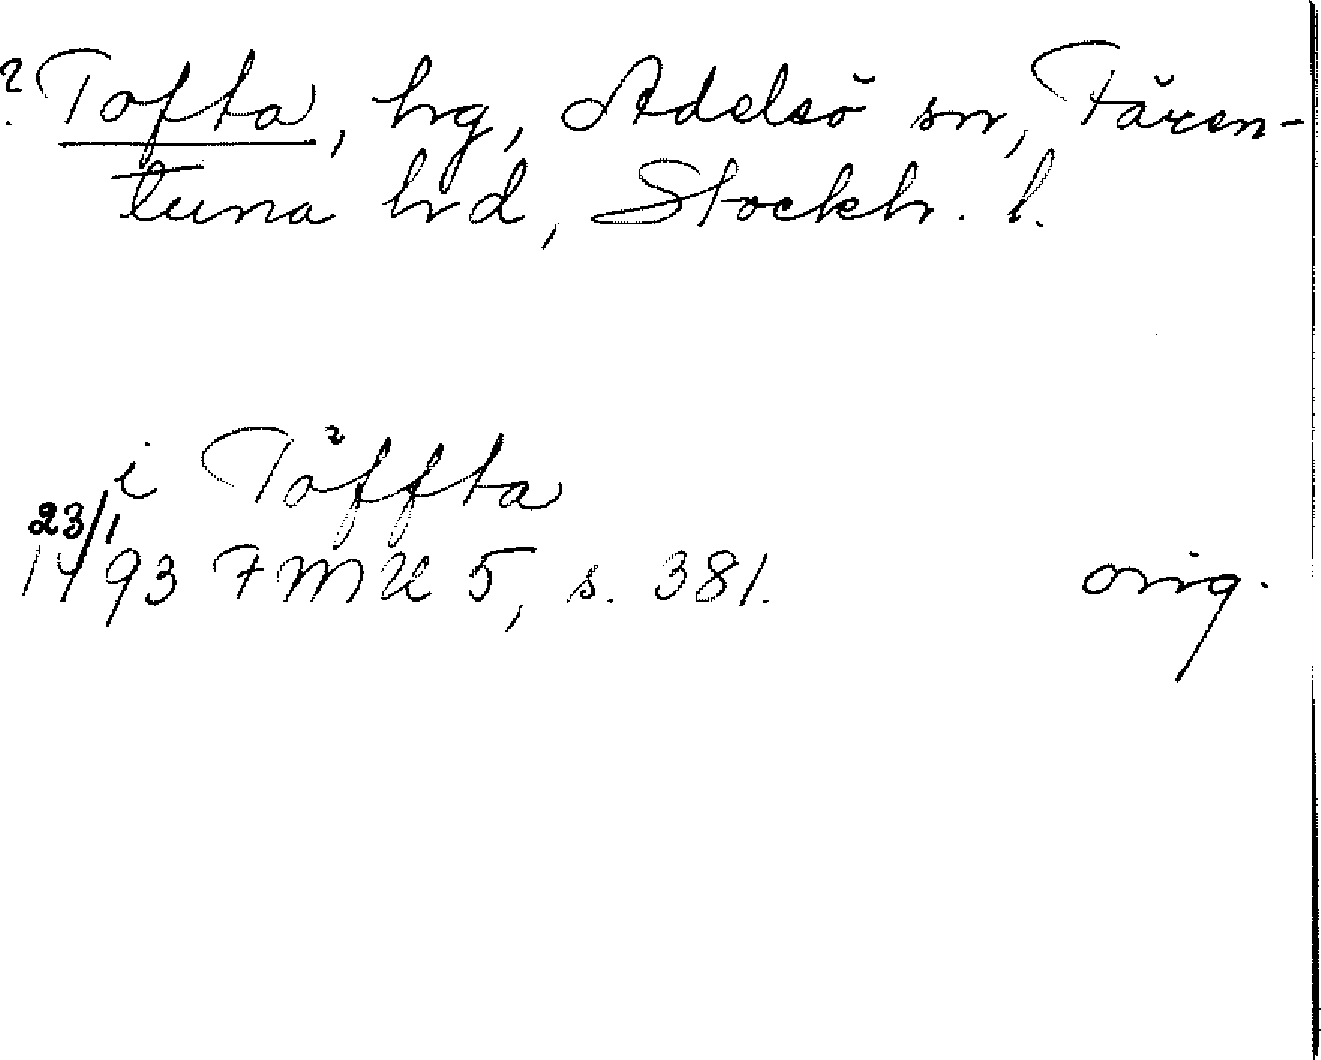 ? Tofta, hg, Adelsö sn, Fären-
tuna hrd, Stockh. l.
i Töffta
23/1
1493 FMU 5, s. 381. orig.